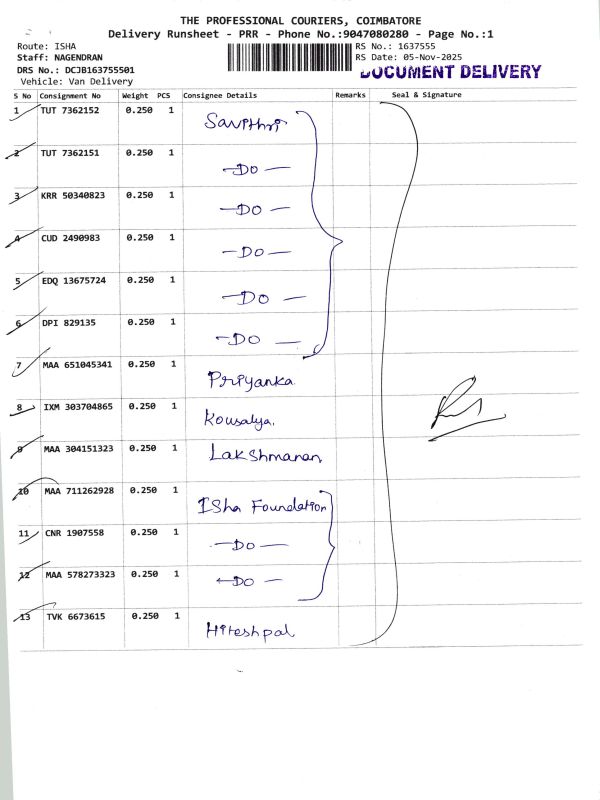 THE PROFESSIONAL COURIERS, COIMBATORE
Delivery Runsheet - PRR - Phone No.:9047080280 - Page No.:1
Route: ISHA
RS No.: 1637555
Staff: NAGENDRAN
RS Date: 05-Nov-2025
DRS No.: DCJB163755501
DOCUMENT DELIVERY
Vehicle: Van Delivery
S No Consignment No Weight PCS Consignee Details Remarks Seal & Signature
1 TUT 7362152 0.250 1 Savithri
2 TUT 7362151 0.250 1 -DO-
3 KRR 50340823 0.250 1 -DO-
4 CUD 2490983 0.250 1 -DO-
5 EDQ 13675724 0.250 1 -DO-
6 DPI 829135 0.250 1 -DO-
7 MAA 651045341 0.250 1 Priyanka
8 IXM 303704865 0.250 1 Kousalya.
9 MAA 304151323 0.250 1 Lakshmanan
10 MAA 711262928 0.250 1 ISha Foundation
11 CNR 1907558 0.250 1 -DO-
12 MAA 578273323 0.250 1 -DO-
13 TVK 6673615 0.250 1 Hiteshpal